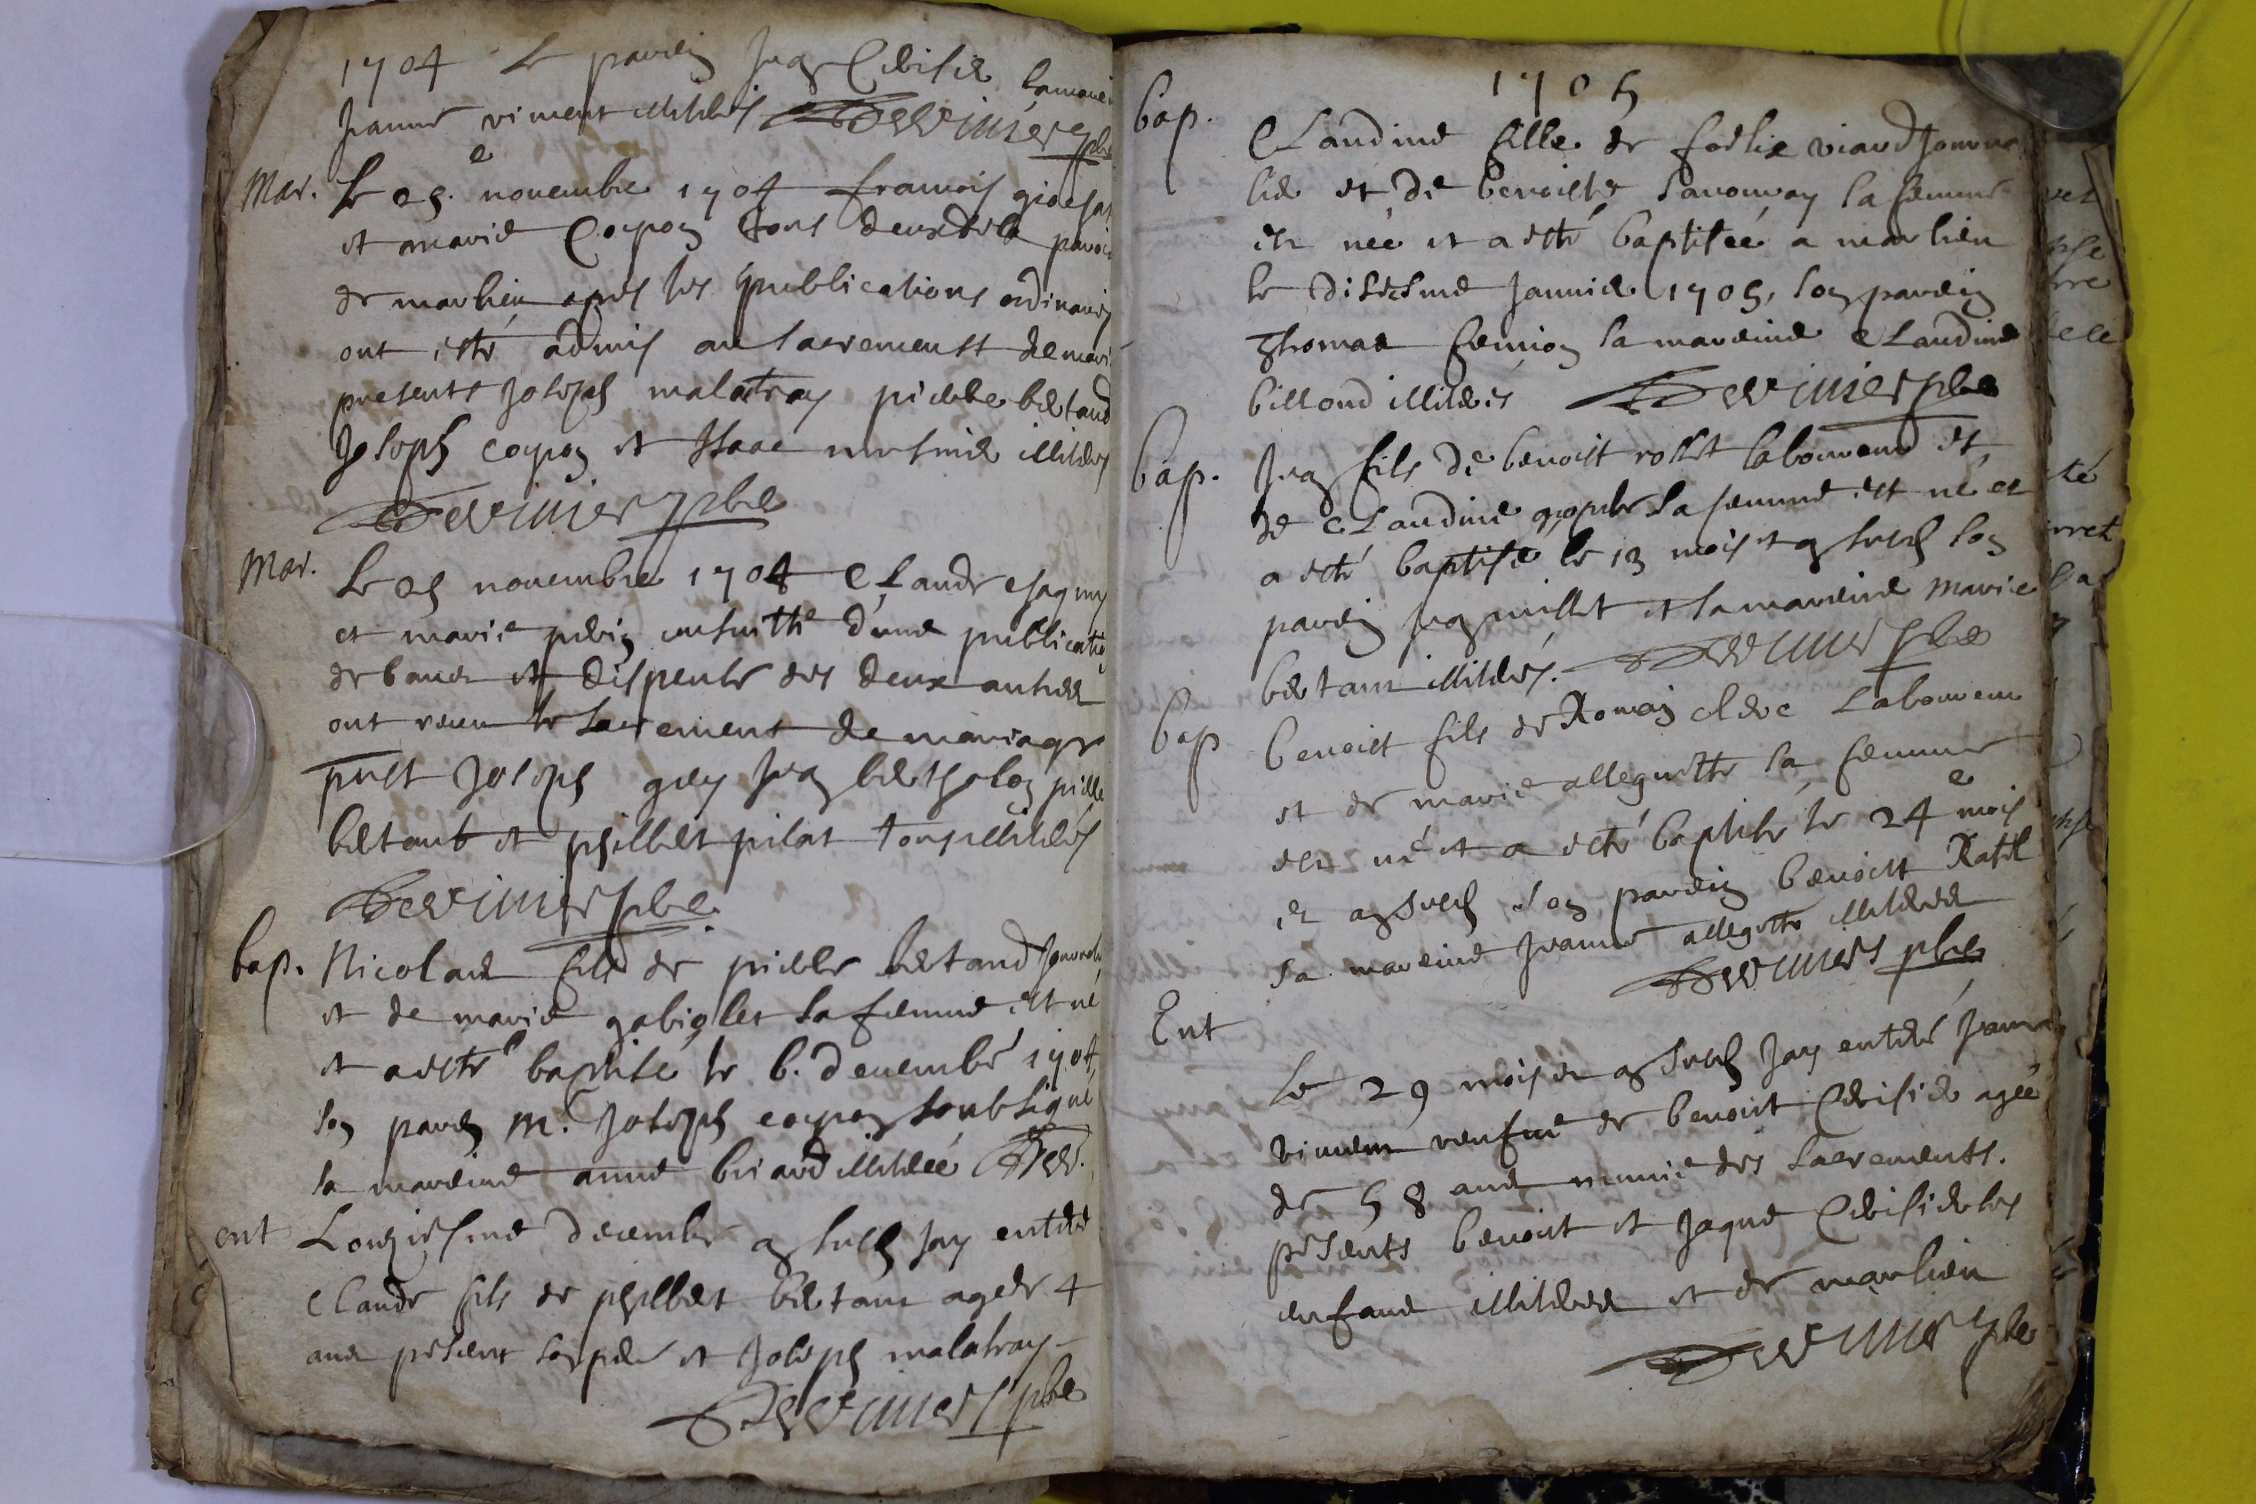 1704 le parein Jean Cerisier la marei
Jeanne viment illiterés Devimier pbre
Mar. Le 25.e novembre 1704 francois
et marie Coypon tous deux de la paroi
de marlieu apres les publications ordinaires
ont esté admis au sacrement de mari
presents Joseph malatray pierre bertaud
Joseph coypon et Isaac illiterés
Devimier pbre
Mar. Le 25 novembre 1704 Claude
et marie perin ensuitte d'une publication
de bancs et dispense des deux autres
ont receu le sacrement de mariage
pnst Joseph grey Jean bertholon pierre
bertaud et philbert pilat tous illiterés
Devimier pbre.
bap. Nicolas fils de pierre bertaud Journalr
et de marie sa femme est né
et a esté baptisé le 6. decembre 1704
son parein mr. Joseph coypon soubsigné
la mareine anne briard illiterée Dev.
ent L'onziesme decembre an susd. jay enterré
Claude fils de philbert bertaut agé de 4
ans present son pere et Joseph malatray
Devimier pbre
1705
bap. Claudine fille de foelix viard Journa
lier et de benoiste sa femme
est née et a esté baptisée a marlieu
le dixiesme Janvier 1705, son parein
Thomas la mareine Claudine
billoud illiterés Devimier pbre
bap. Jean fils de benoist rosset laboureur et
de Claudine sa femme est né et
a esté baptisé le 13 mois et an susd. son
parein Jean millet et la mareine marie
bertaut illiterés. Devimier pbre
bap benoist fils de Romain clerc laboureur
et de marie allegrette sa femme
est né et a esté baptisé le 24e mois
et an susd. son parein benoist Ratel
sa mareine Jeanne allegrette illiterés
Devimiers pbre
Ent Le 29 mois et an susd. jay enterré Jeanne
viment veufve de benoist Cerisier agée
de 58 ans munie des sacrements.
presents benoist et Jaque Cerisier ses
enfans illiterés et de marlieu
Devimier pbre